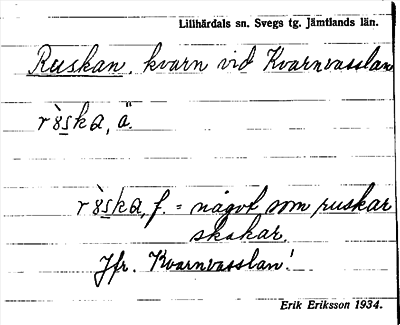 Lillhärdals sn. Svegs tg. Jämtlands län.
Ruskan, kvarn vid Kvarnvasslan
rùska, ä.
rùska, f. = något som ruskar
skakar.
Jfr. Kvarnvasslan!
Erik Eriksson 1934.